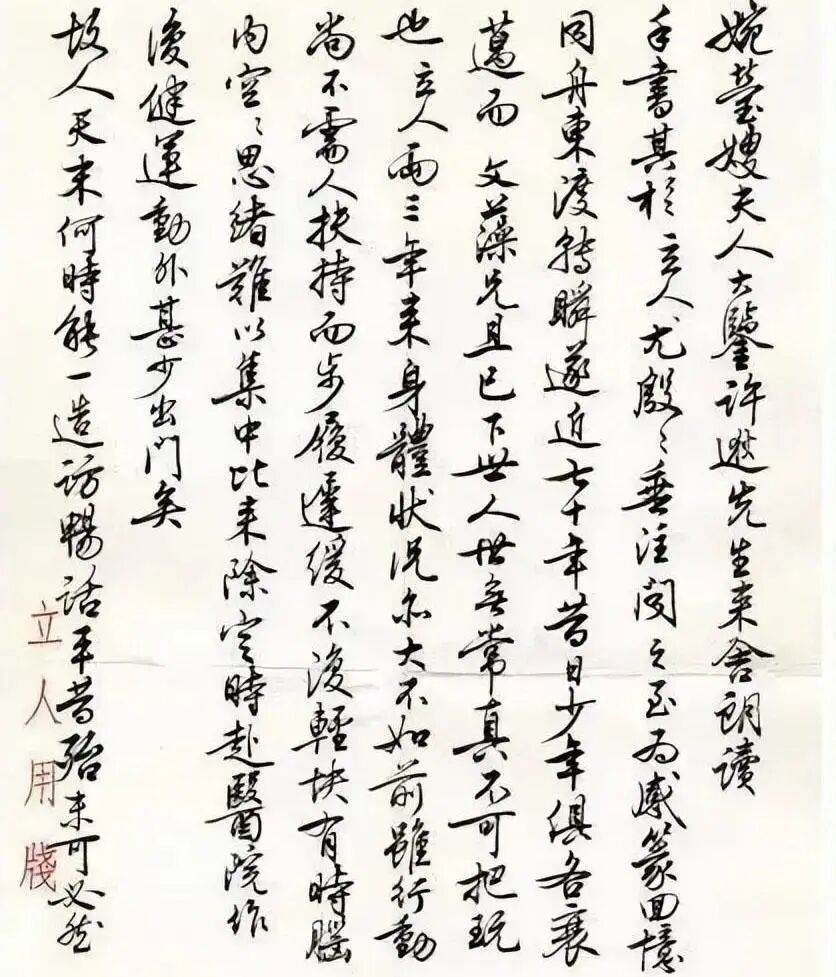 婉莹嫂夫人大鑒許遜先生来舍朗讀
手書其於立人尤殷〻垂注闻之至為感篆回憶
同舟東渡轉瞬遂近七十年昔日少年俱各衰
邁而 文藻兄且已下世人世無常真不可把玩
也立人兩三年来身體狀况亦大不如前雖行動
尚不需人扶持而步履遲緩不復輕快有時腦
内空〻思緒難以集中比来除定時赴醫院作
復健運動外甚少出門矣
故人天末何時能一造訪暢話平昔殆未可必然
立人用牋